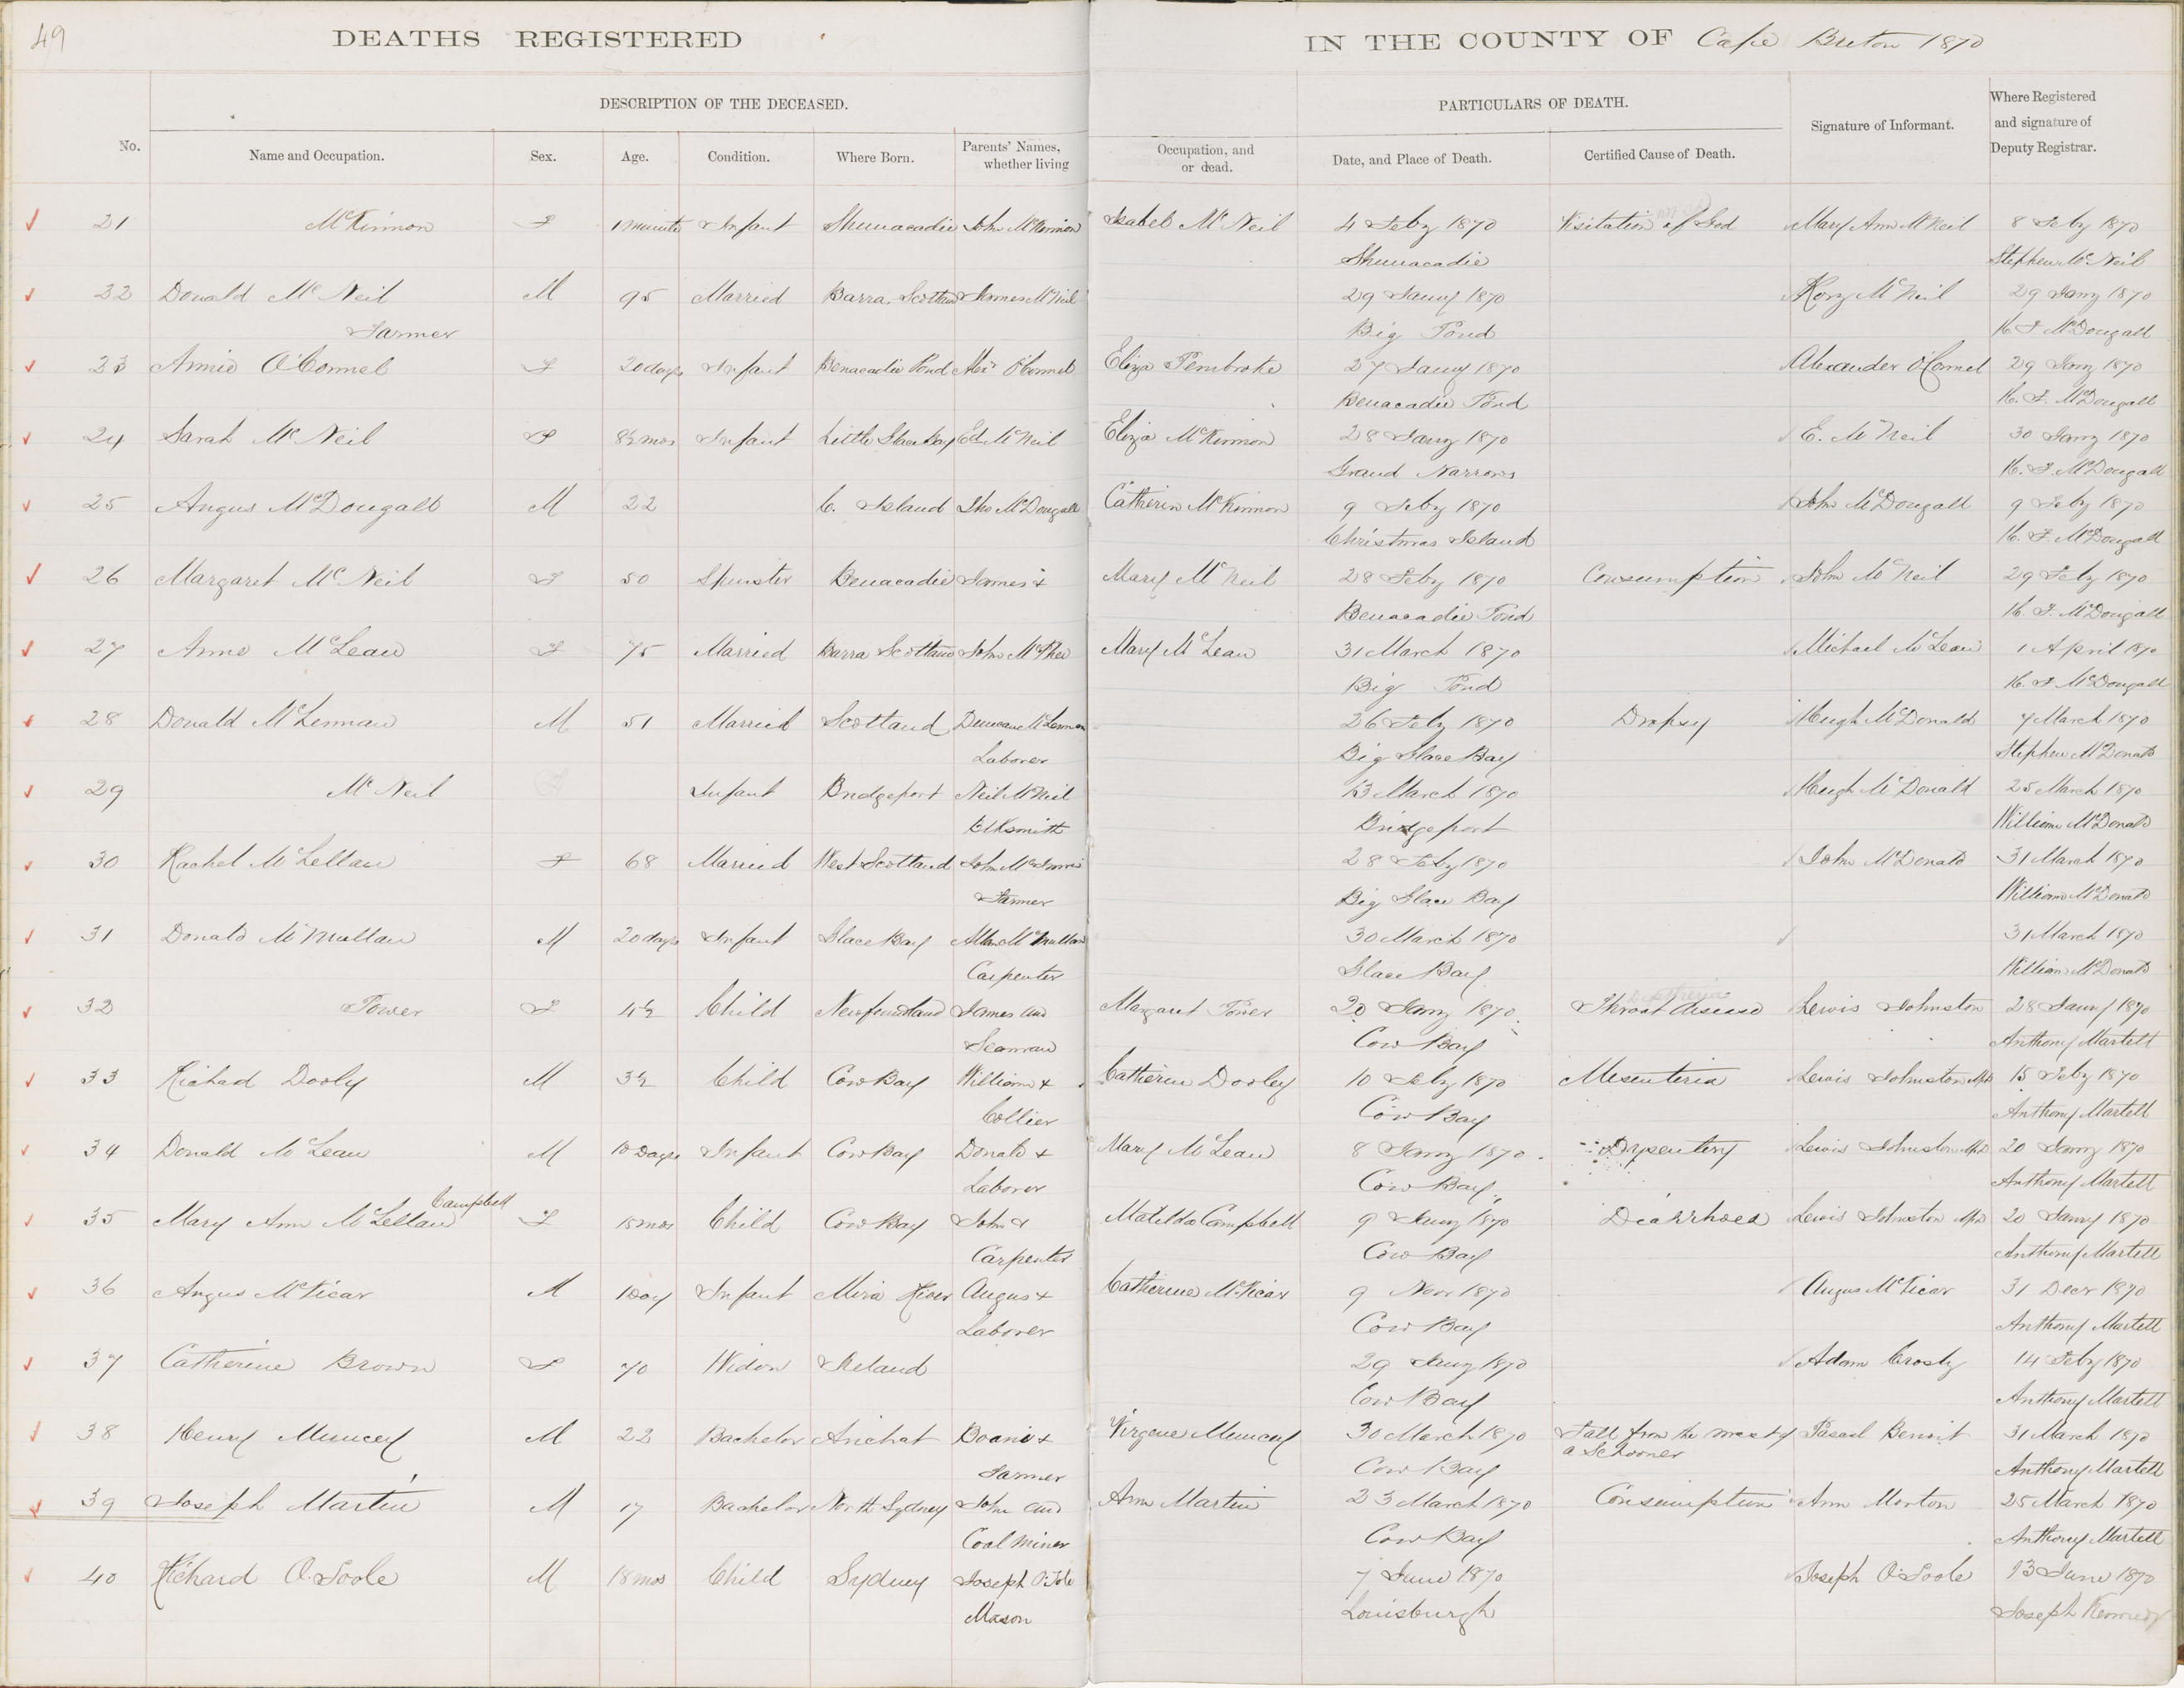 49
DEATHS REGISTERED IN THE COUNTY OF Cape Breton 1870
DESCRIPTION OF THE DECEASED. PARTICULARS OF DEATH. Signature of Informant. Where Registered and signature of Deputy Registrar.
No. Name and Occupation. Sex. Age. Condition. Where Born. Parents' Names, whether living Occupation, and or dead. Date, and Place of Death. Certified Cause of Death.
21 McKinnon F 1 minute Infant Shunacadie John McKinnon Isabel McNeil 4 Feby 1870 Visitation of God Mary Ann McNeil 8 Feby 1870
Shunacadie Stephen McNeil
22 Donald McNeil M 95 Married Barra, Scotland James McNeil 29 Jany 1870 Rory McNeil 29 Jany 1870
Farmer Big Pond McDougall
23 Annie O'Connel F 20 days Infant Benacadie Pond Alexr O'Connel Eliza Pembroke 27 Jany 1870 Alexander O'Connel 29 Jany 1870
Benacadie Pond McDougall
24 Sarah McNeil F 8½ mos Infant Little Glace Bay Ed McNeil Eliza McKinnon 28 Jany 1870 E. McNeil 30 Jany 1870
Grand Narrows McDougall
25 Angus McDougall M 22 C. Island Jno McDougall Catherin McKinnon 9 Feby 1870 John McDougall 9 Feby 1870
Christmas Island McDougall
26 Margaret McNeil F 50 Spinster Benacadie James & Mary McNeil 28 Feby 1870 Consumption John McNeil 29 Feby 1870
Benacadie Pond McDougall
27 Anne McLean F 75 Married Barra Scotland John McPhee Mary McLean 31 March 1870 Michael McLean 1 April 1870
Big Pond McDougall
28 Donald McLennan M 51 Married Scotland Duncan McLennan 26 Feby 1870 Dropsy Hugh McDonald 7 March 1870
Laborer Big Glace Bay Stephen McDonald
29 McNeil Infant Bridgeport Neil McNeil 13 March 1870 Hugh McDonald 25 March 1870
Blksmith Bridgeport William McDonald
30 Rachel McLellan F 68 Married West Scotland John McInnis 28 Feby 1870 John McDonald 31 March 1870
Farmer Big Glace Bay William McDonald
31 Donald McMullan M 20 days Infant Glace Bay Allan McMullan 30 March 1870 31 March 1870
Carpenter Glace Bay William McDonald
32 Power F 4½ Child Newfoundland James and Margaret Power 20 Jany 1870 Throat disease Lewis Johnston 28 Jany 1870
diptheria
Seaman Cow Bay Anthony Martell
33 Richad Dooly M 3½ Child Cow Bay William & Catherine Dooley 10 Feby 1870 Mesenteria Lewis Johnston MD 15 Feby 1870
Collier Cow Bay Anthony Martell
34 Donald McLean M 10 Days Infant Cow Bay Donald & Mary McLean 8 Jany 1870 Dysentery Lewis Johnston MD 20 Jany 1870
Laborer Cow Bay Anthony Martell
Campbell
35 Mary Ann McLellan F 15 mos Child Cow Bay John & Matilda Campbell 9 Jany 1870 Diarrhoea Lewis Johnston MD 20 Jany 1870
Carpenter Cow Bay Anthony Martell
36 Angus McVicar M 1 Day Infant Mira River Angus & Catherine McVicar 9 Nov 1870 Angus McVicar 31 Decr 1870
Laborer Cow Bay Anthony Martell
37 Catherine Brown F 70 Widow Ireland 29 Jany 1870 Adam Crosby 14 Feby 1870
Cow Bay Anthony Martell
38 Henry Muncey M 22 Bachelor Arichat & Muncey 30 March 1870 Fall from the mast of Benoit 31 March 1870
a Schooner
Farmer Cow Bay Anthony Martell
39 Joseph Martin M 17 Bachelor North Sydney John and Ann Martin 23 March 1870 Consumption Ann Morton 25 March 1870
Coal Miner Cow Bay Anthony Martell
40 Richard O'Toole M 18 mos Child Sydney Joseph O'Tole 7 June 1870 Joseph O'Toole 13 June 1870
Mason Louisburgh Joseph Kennedy